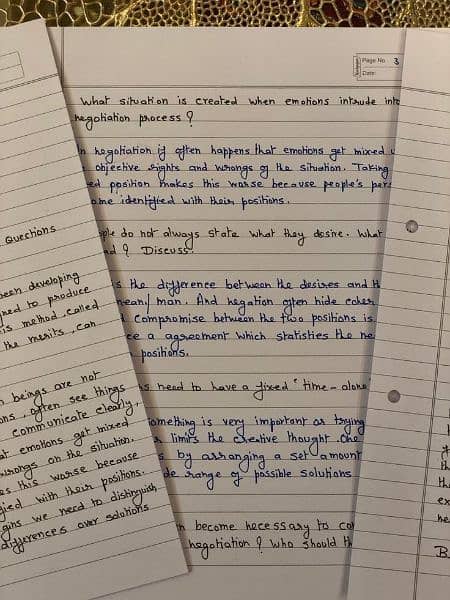 Page No. 3
Date:
What situation is created when emotions intrude into
negotiation process ?
In negotiation it often happens that emotions get mixed
objective rights and wrongs of the situation. Taking
position makes this worse because people's
identified with their positions.
do not always state what they desire. What
? Discuss.
is the difference between the desires and
mean/ man. And negation often hide
compromise between the two positions is
a agreement which statisties the
positions.
need to have a fixed "time-alone
something is very important as trying
limits the creative thought. One
by arranging a set amount
range of possible solutions
become necessary to
negotiation ? Who should
Questions
been developing
to produce
method, called
the merits, can
beings are not
often see things
communicate clearly.
emotions get mixed
wrongs on the situation.
this worse because
with their positions.
we need to distinguish
differences over solutions